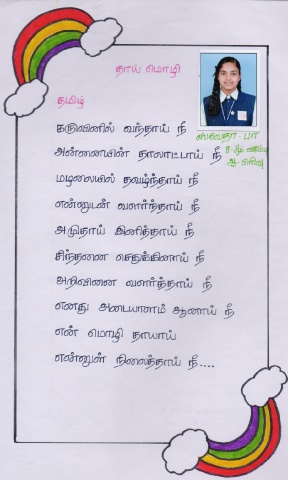 தாய் மொழி
தமிழ்
ஸ்வேதா - பா
8-ஆம் வகுப்பு
ஆ - பிரிவு
கருவினில் வந்தாய் நீ
அன்னையின் தாலாட்டாய் நீ
மழலையில் தவழ்ந்தாய் நீ
என்னுடன் வளர்ந்தாய் நீ
அமுதாய் இனித்தாய் நீ
சிந்தனை செதுக்கினாய் நீ
அறிவினை வளர்த்தாய் நீ
எனது அடையாளம் ஆனாய் நீ
என் மொழி தாயாய்
என்னுள் நிலைத்தாய் நீ....